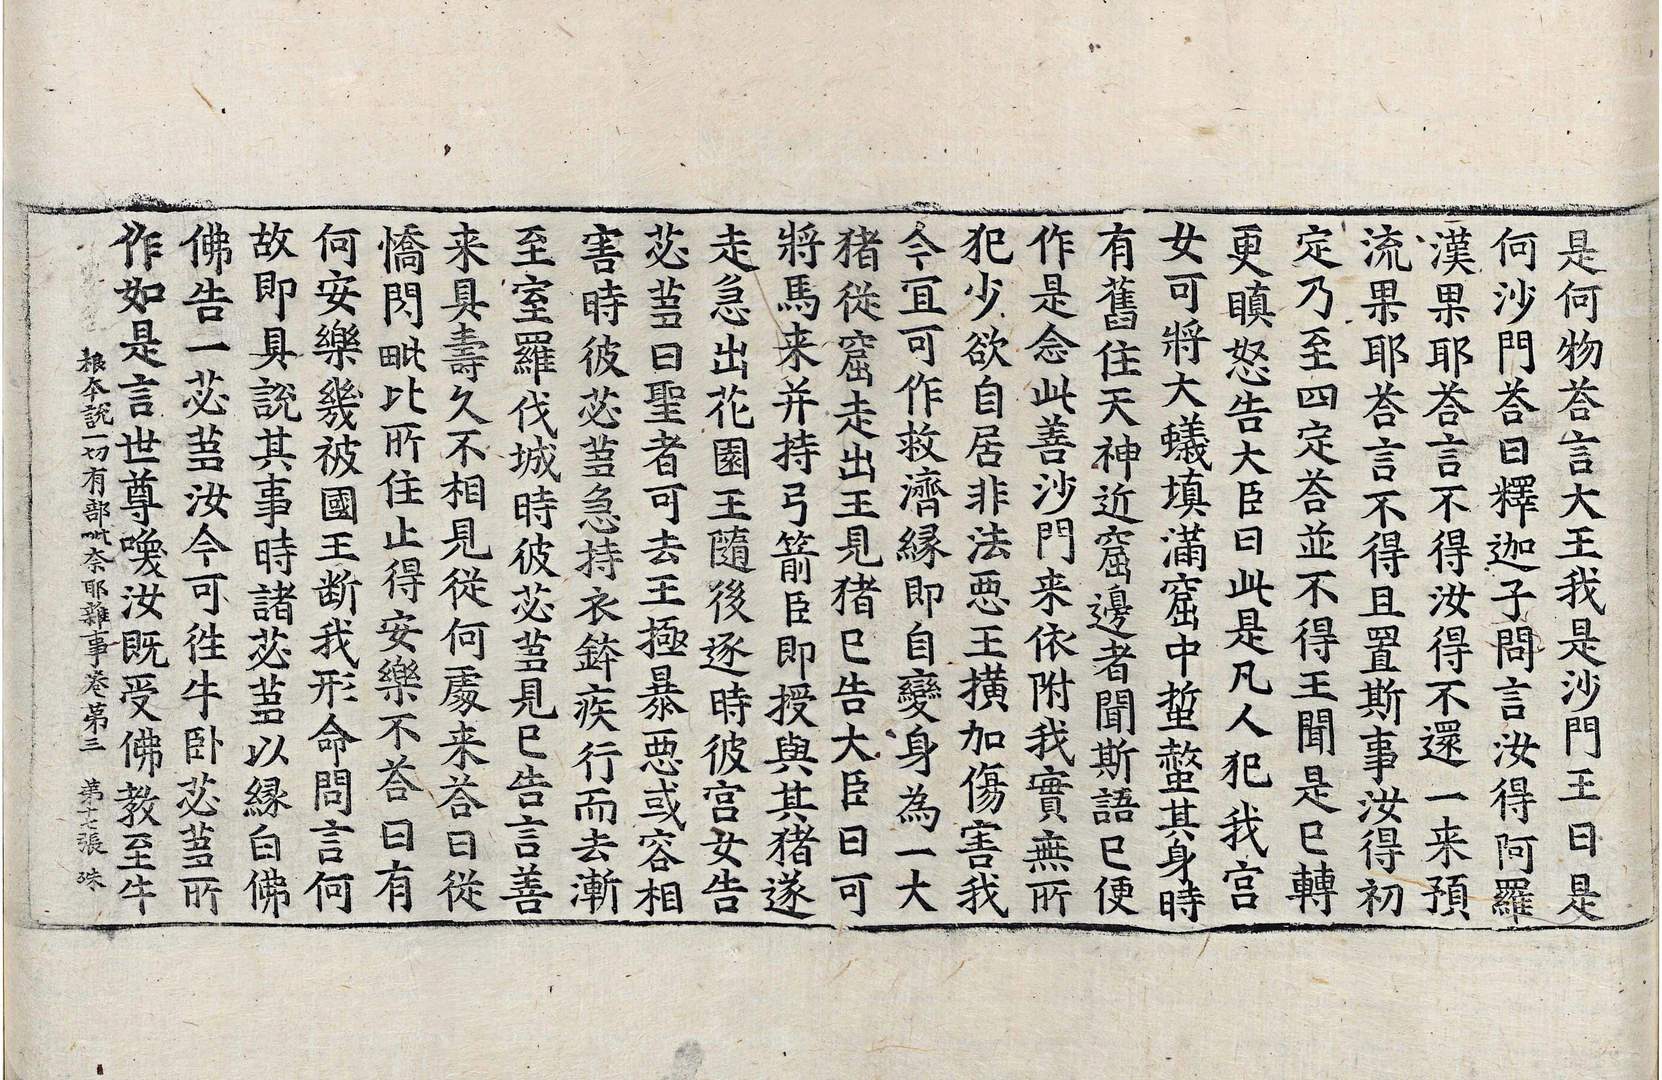 是何物荅言大王我是沙門王曰是
何沙門荅曰釋迦子問言汝得阿羅
漢果耶荅言不得汝得不還一来預
流果耶荅言不得且置斯事汝得初
定乃至四定荅並不得王聞是已轉
更瞋怒告大臣曰此是凡人犯我宫
女可將大蟻填滿窟中蜇螫其身時
有舊住天神近窟邊者聞斯語已便
作是念此善沙門来依附我實無所
犯少欲自居非法惡王横加傷害我
今冝可作救濟縁即自變身為一大
猪從窟走出王見猪已告大臣曰可
將馬来并持弓箭臣即授與其猪遂
走急出花園王隨後逐時彼宫女告
苾蒭曰聖者可去王極暴惡或容相
害時彼苾蒭急持衣鉢疾行而去漸
至室羅伐城時彼苾蒭見已告言善
来具壽久不相見從何處来荅曰從
憍閃毗比所住止得安樂不荅曰有
何安樂幾被國王断我形命問言何
故即具說其事時諸苾蒭以縁白佛
佛告一苾蒭汝今可徃牛卧苾蒭所
作如是言世尊喚汝既受佛教至牛
根本說一切有部毗奈耶雜事卷第三 第十七張 珠